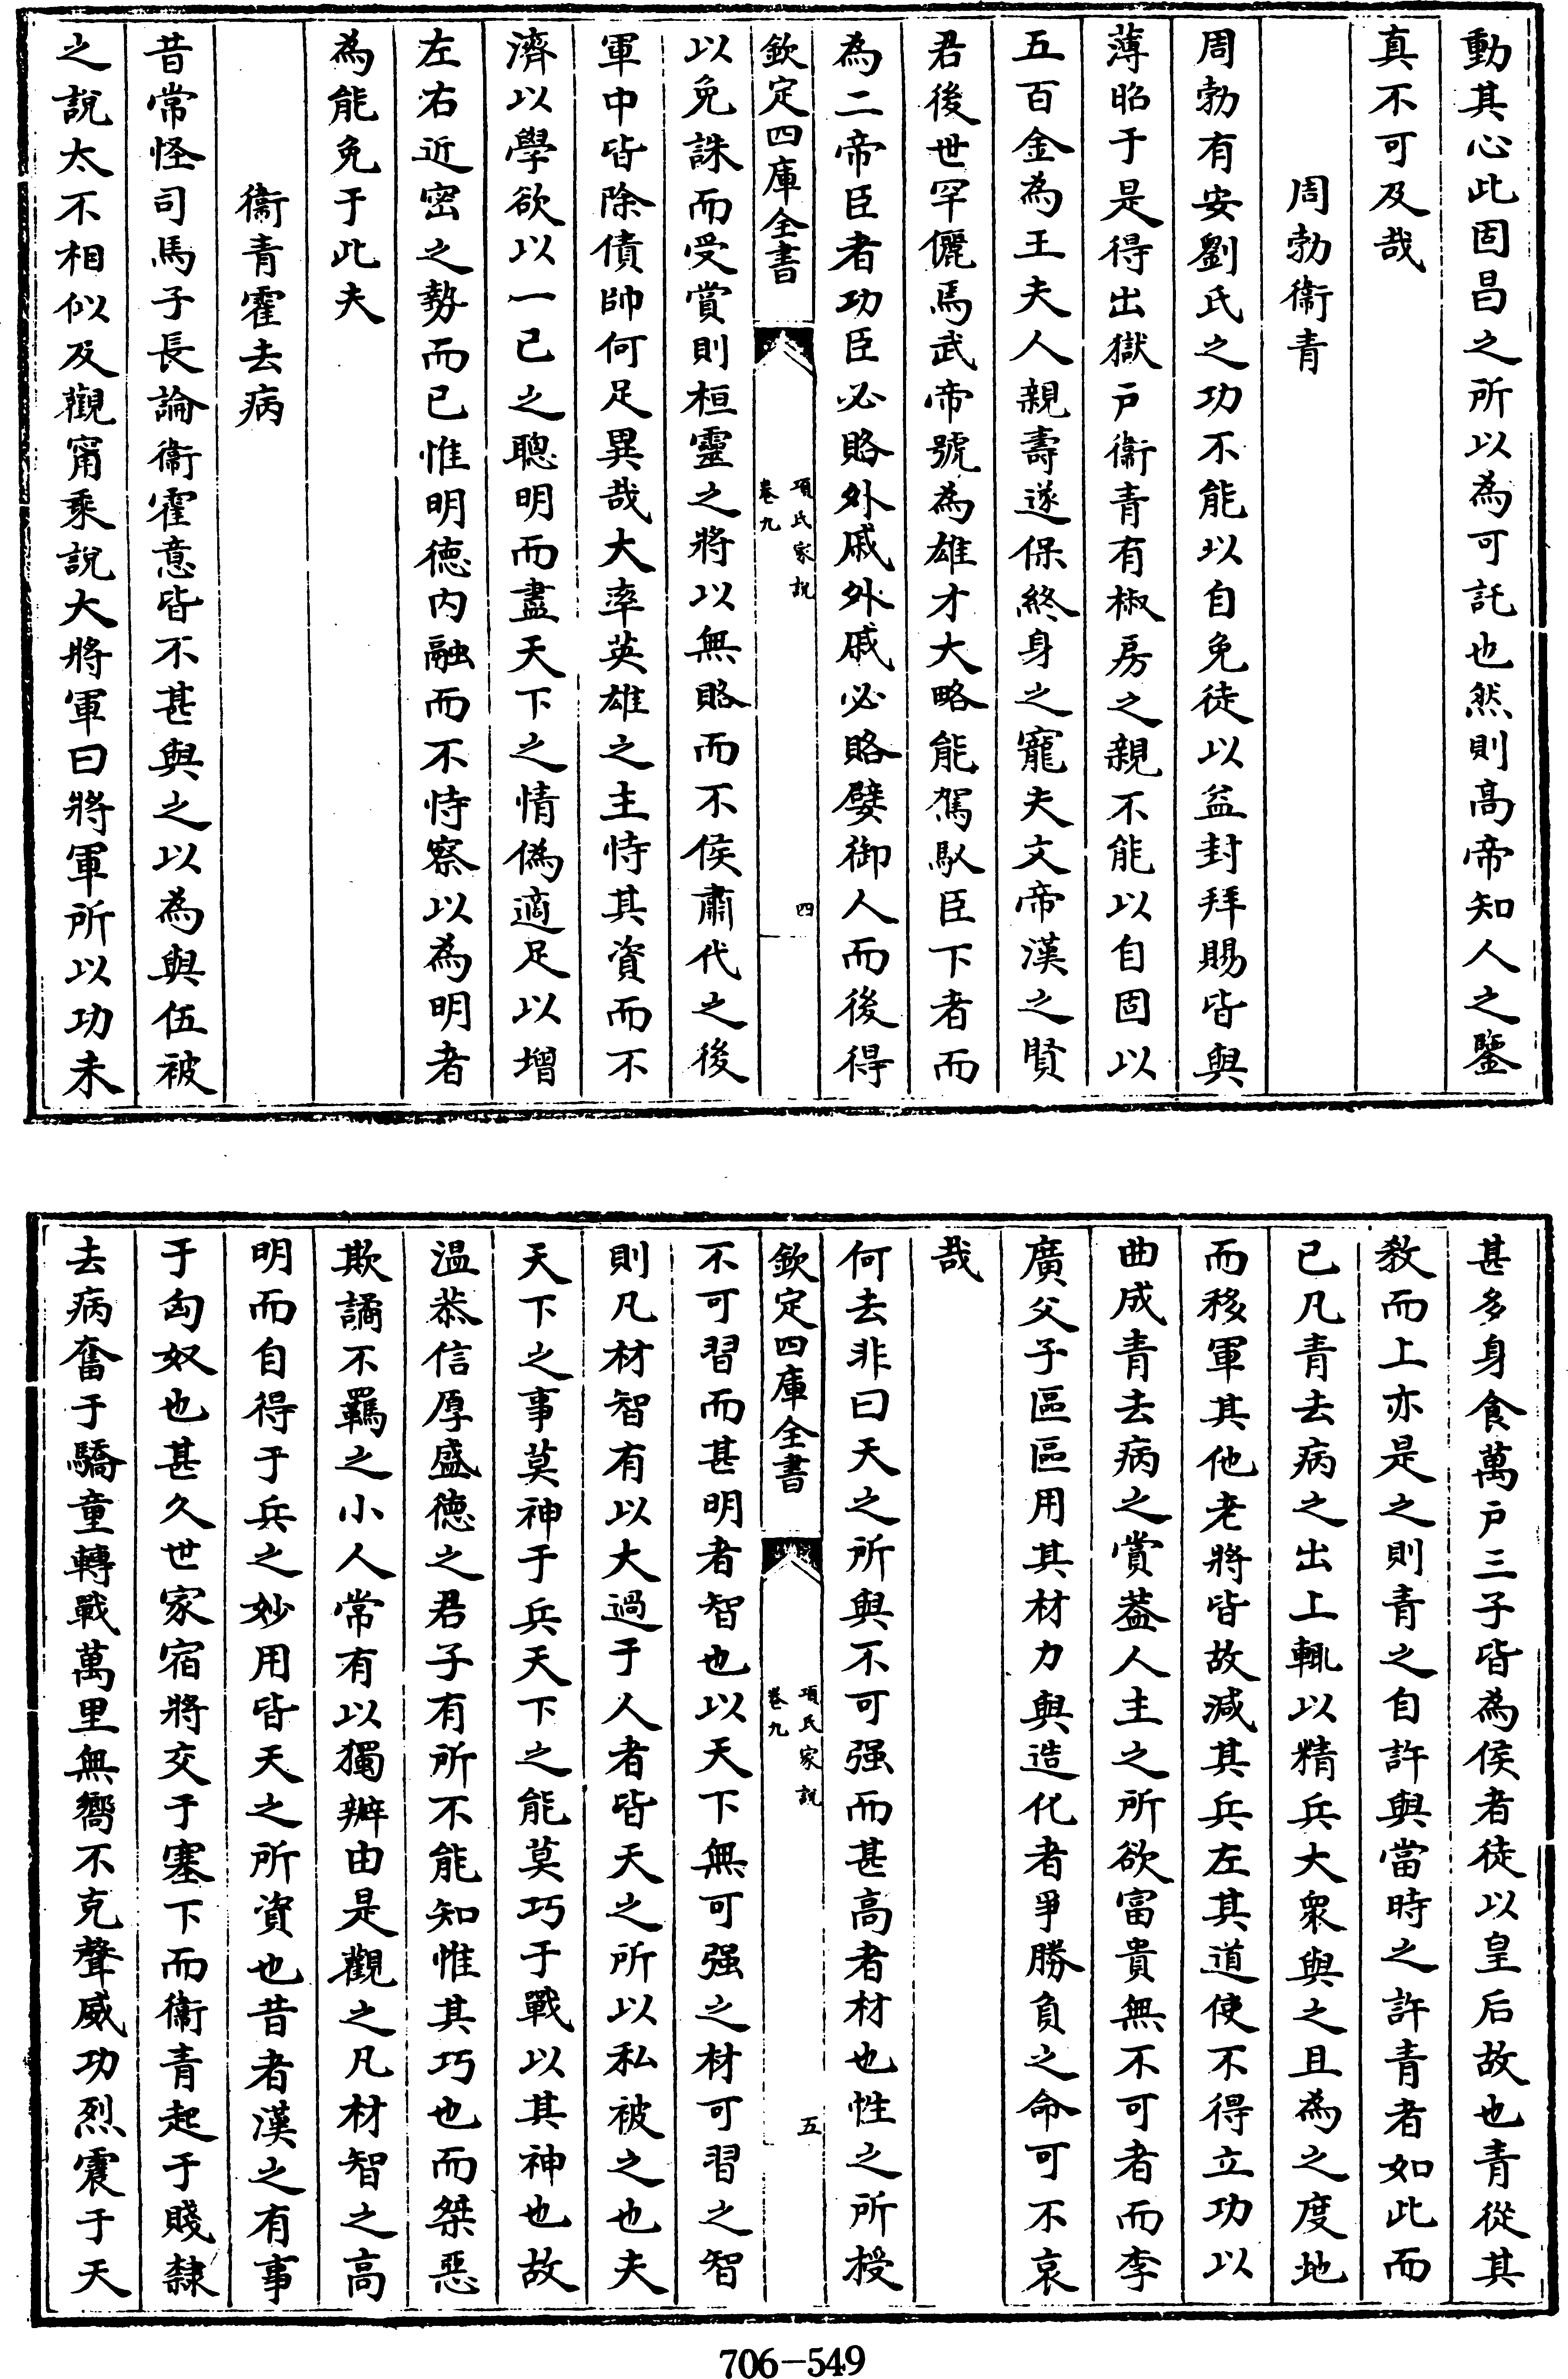 動其心此固昌之所以為可託也然則高帝知人之鑒
真不可及哉
周勃衞青
周勃有安劉氏之功不能以自免徒以益封拜賜皆與
薄昭于是得出獄戶衞青有椒房之親不能以自固以
五百金為王夫人親壽遂保終身之寵夫文帝漢之賢
君後世罕儷馬武帝號為雄才大略能駕馭臣下者而
為二帝臣者功臣必賂外戚外戚必賂嬖御人而後得
欽定四庫全書
項氏家說
卷九
四
以免誅而受賞則桓靈之將以無賂而不侯肅代之後
軍中皆除債帥何足異哉大率英雄之主恃其資而不
濟以學欲以一已之聰明而盡天下之情偽適足以增
左右近密之勢而已惟明德内融而不恃察以為明者
為能免于此夫
衞青霍去病
昔常怪司馬子長論衞霍意皆不甚與之以為與伍被
之說太不相似及觀甯乘說大將軍曰將軍所以功未
甚多身食萬戶三子皆為侯者徒以皇后故也青從其
教而上亦是之則青之自許與當時之許青者如此而
已凡青去病之出上輒以精兵大衆與之且為之度地
而移軍其他老將皆故減其兵左其道使不得立功以
曲成青去病之賞葢人主之所欲富貴無不可者而李
廣父子區區用其材力與造化者爭勝負之命可不哀
哉
何去非曰天之所與不可强而甚高者材也性之所授
欽定四庫全書
項氏家說
卷九
五
不可習而甚明者智也以天下無可强之材可習之智
則凡材智有以大過于人者皆天之所以私被之也夫
天下之事莫神于兵天下之能莫巧于戰以其神也故
温恭信厚盛德之君子有所不能知惟其巧也而桀惡
欺譎不羈之小人常有以獨辦由是觀之凡材智之高
明而自得于兵之妙用皆天之所資也昔者漢之有事
于匈奴也甚久世家宿將交于塞下而衞青起于賤隸
去病奮于驕童轉戰萬里無嚮不克聲威功烈震于天
706-549